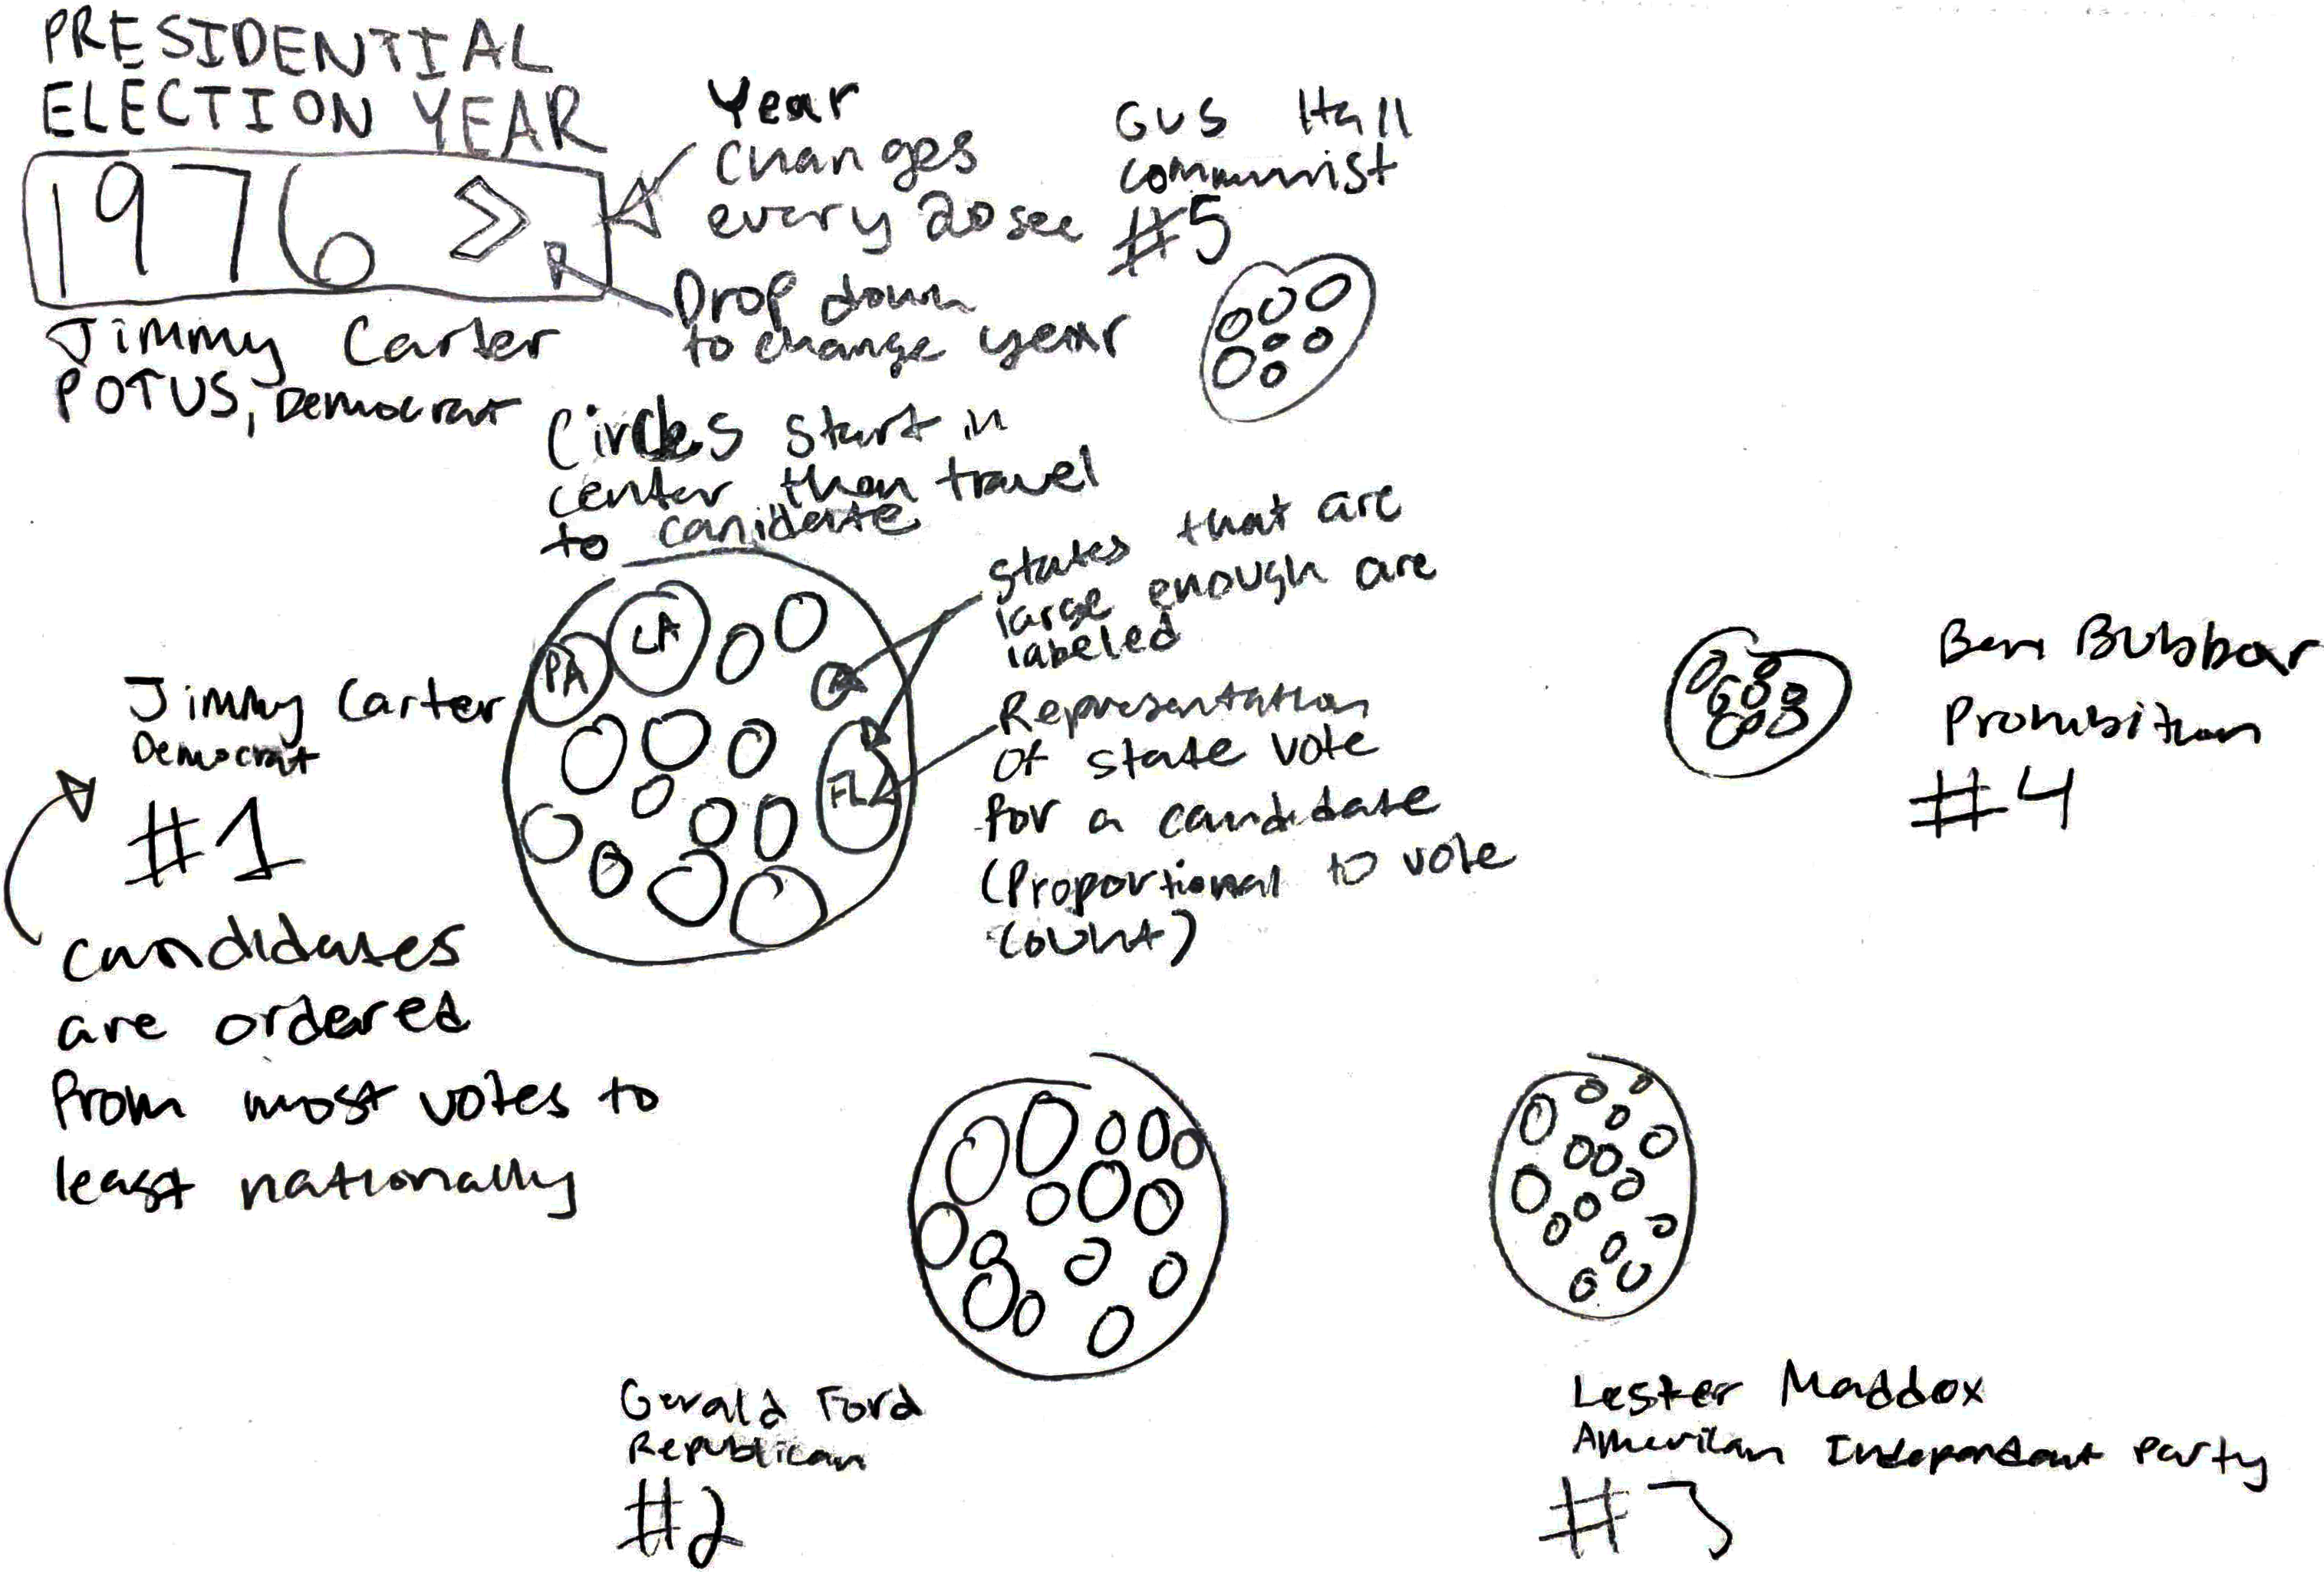 PRESIDENTIAL
ELECTION YEAR
1976 >
Jimmy Carter
POTUS, Democrat
Year
changes
every 20 sec
Drop down
to change year
Gus Hall
Communist
#5
Circles start in
center then travel
to canidate
states that are
large enough are
labeled
Representation
of state vote
for a candidate
(Proportional to vote
count)
PA
LA
FL
Jimmy Carter
Democrat
#1
candidates
are ordered
from most votes to
least nationally
Ben Bubbar
Prohibition
#4
Gerald Ford
Republican
#2
Lester Maddox
American Independant Party
#3